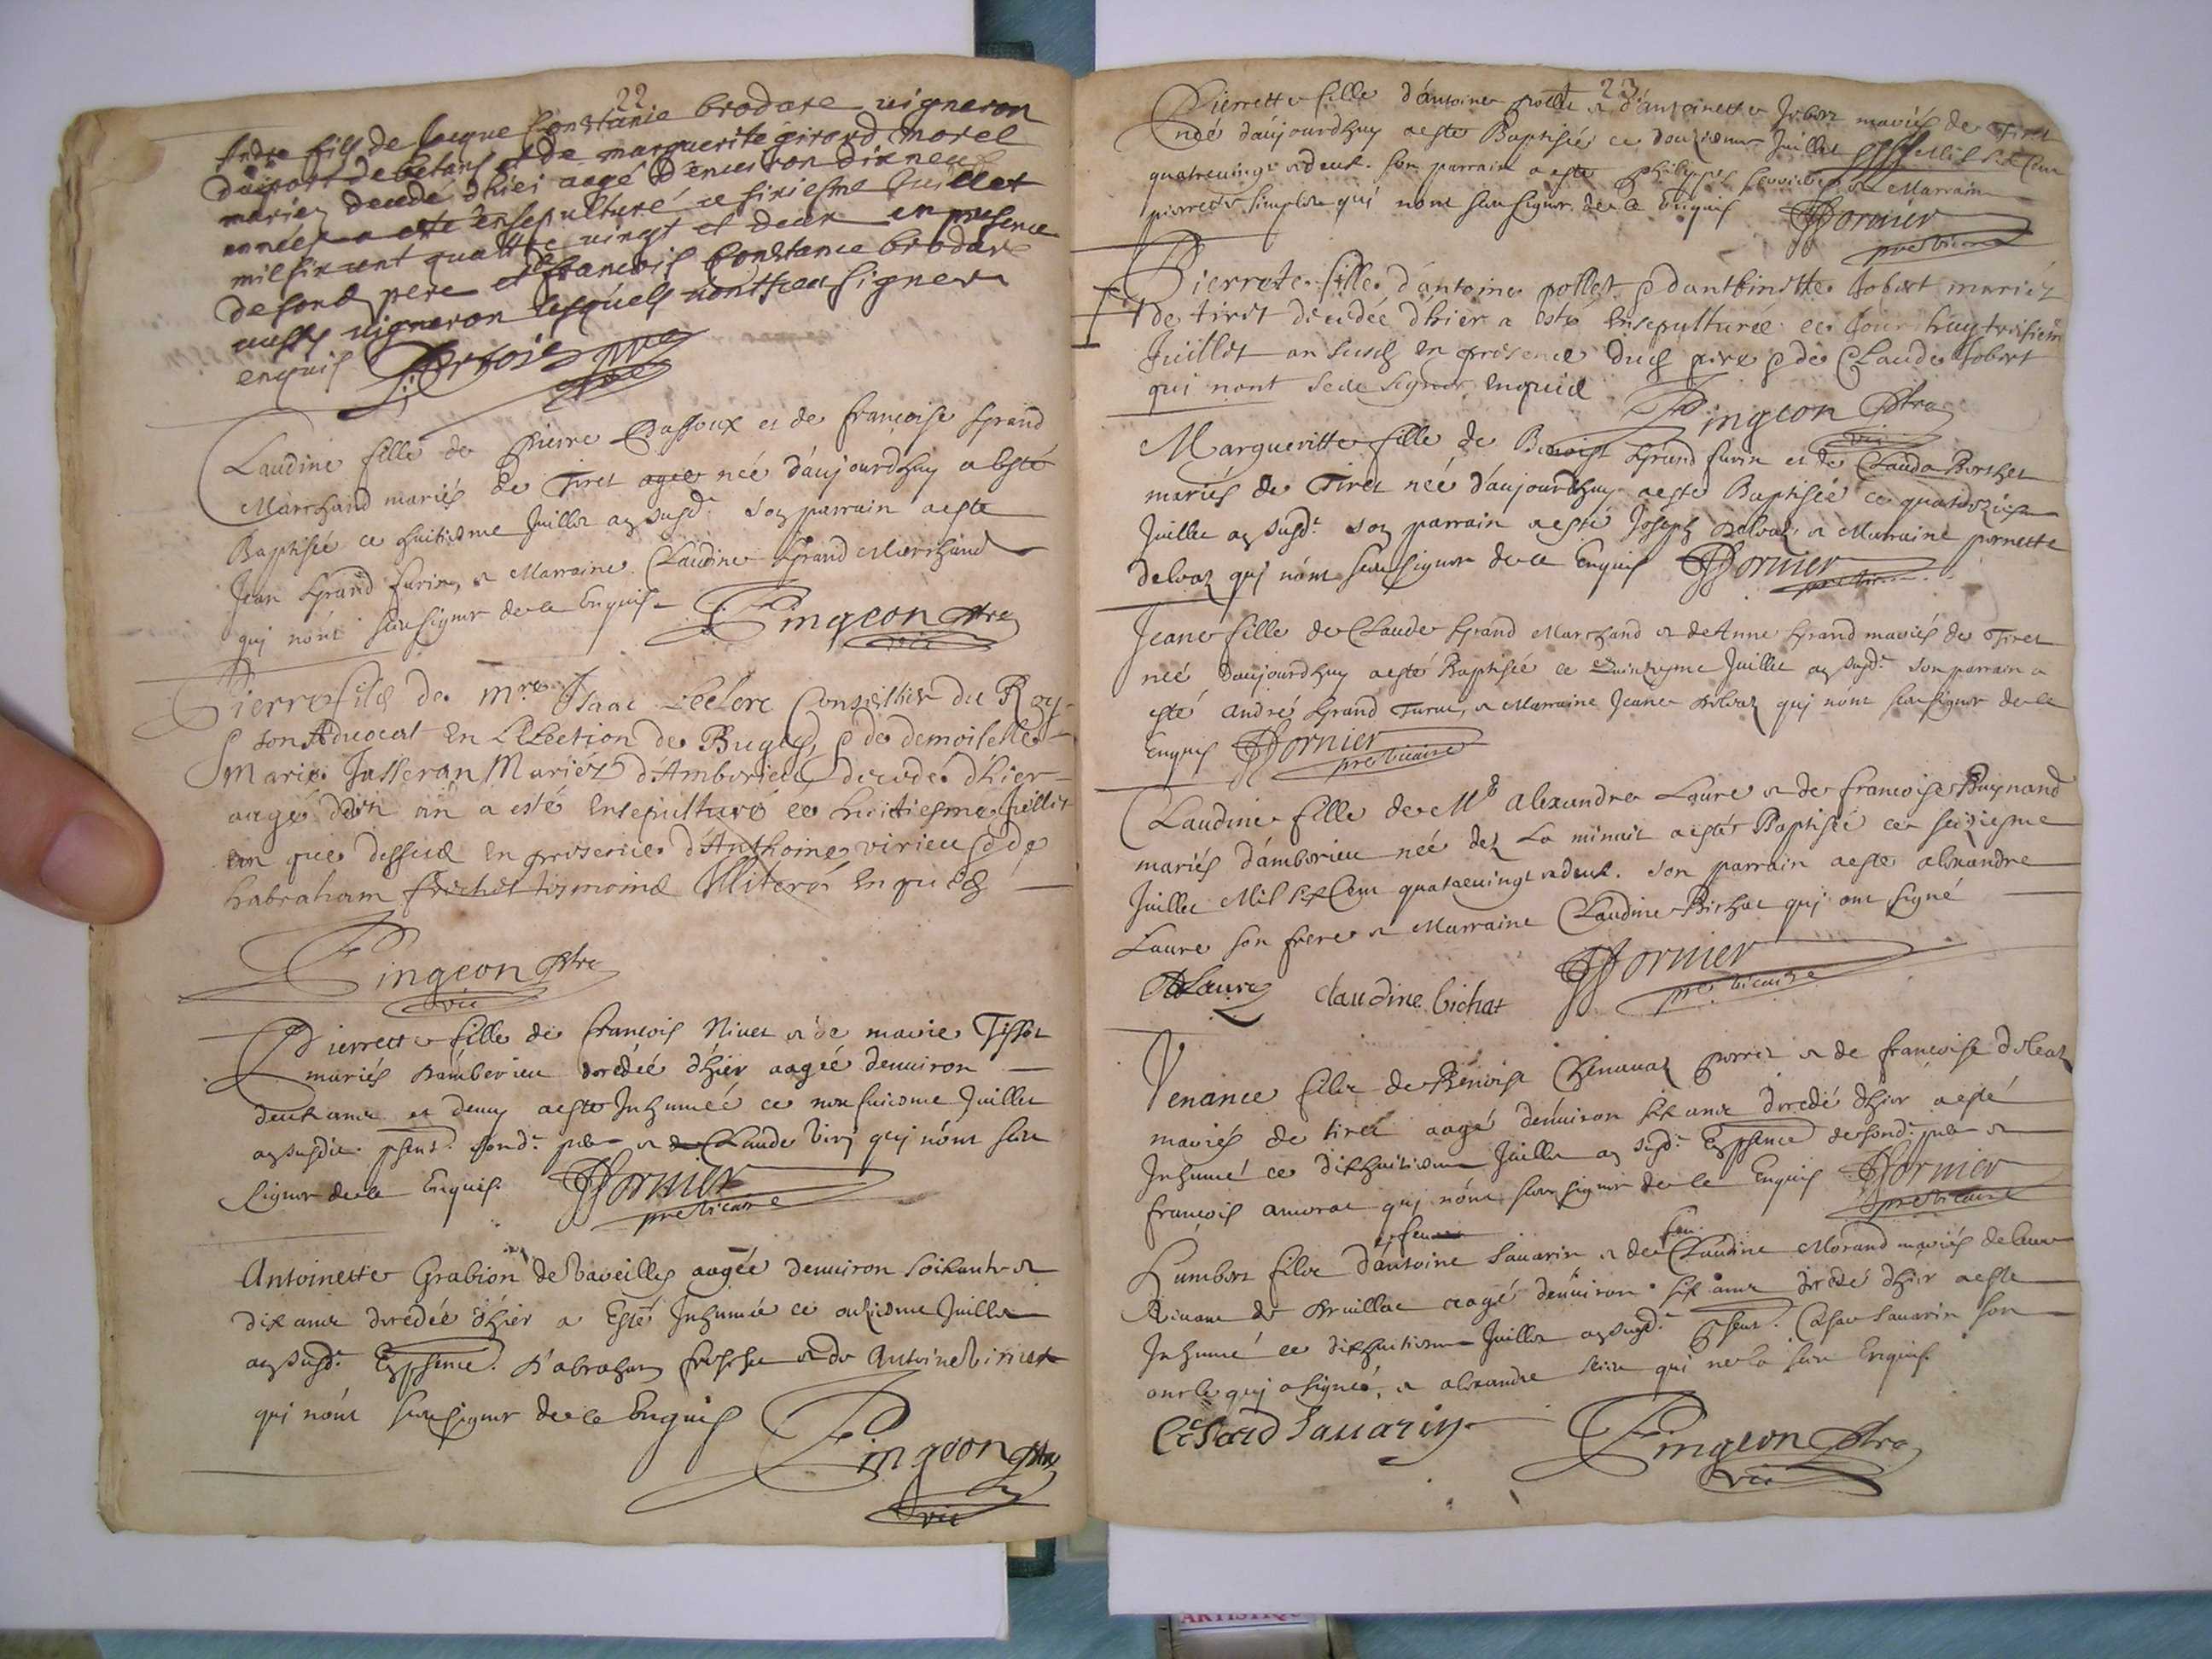 22
Andre fils de Jacque Constanse brodare vigneron
de betans et de marguerite girord morel
mariez decedé dhier aagé d'enuiron dix neuf
années a esté ensepulturé ce sixiesme Juillet
mil six cent quattre vingt et deux en presence
de sond pere et de francois Constance brodare
aussy vigneron lesquels nont sceu signer
enquis
Claudine fille de Pierre Bassoux et de francoise Grand
Marchand mariés de Tiret agee neé d'aujourdhuy a esté
Baptisée ce huitiesme Juillet an susd. son parrain a esté
Jean Grand furin, & Marraine Claudine Grand Marchand
qui nont sceu signer de ce Enquis Pingeon ptre
vic
Pierre fils de Mre Isaac Leclerc Conseillier du Roy
son Advocat en L'Election de Bugey, & de demoiselle
Marie Jusseran Mariéz d'Amborieu decedé d'hier
aagé d'un an a esté Ensepulturé ce huictiesme Juillet
an que dessus en presence d'Anthoine virieu & de
habraham frechet tesmoins Illiterés enquis
Pingeon ptre
vic
Pierrette fille de francois Niuet & de marie Tissot
mariés d'amberieu decedée d'hier aagée denuiron
deux ans et demy a esté Inhumée ce neufuiesme Juillet
an susdit. psent. sond. pere & de Claude qui nont sceu
signer de ce Enquis. Fornier
pre vicaire
Antoinette Grabion de Vareilles aagée denuiron soixante &
dix ans decedée d'hier a Esté Inhumée ce onziesme Juillet
an susd. En psence. d'abraham freschet & de Antoine Virieux
qui nont sceu signer de ce Enquis Pingeon ptre
vic
23
Pierrette fille d'antoine pollet & d'antoinette Jobert mariés de Tiret
neé d'aujourdhuy a esté Baptisée ce douziesme Juillet Mil six Cent
quatreuingt & deux. son parrain a esté Philippes & Marraine
pierrette qui nont sceu signer de ce Enquis Fornier
pre vicaire
Pierrete fille d'antoine pollet & d'anthinette Jobert mariéz
de tiret decedée d'hier a esté Ensepulturée ce Jourd'huy treisiem
Juillet an susd en presence dud pere & de Claude Jobert
qui nont sceu signer enquis Pingeon ptre
vic
Margueritte fille de Benoist Grand furin et de Clauda Berthet
mariés de Tiret neé d'aujourdhuy a esté Baptisée ce quatorziesme
Juillet an susd. son parrain a esté Joseph Delvaz & Marraine pernette
Delvaz qui nont sceu signer de ce Enquis Fornier
pre vicaire
Jeane fille de Claude Grand Marchand & de Anne Grand mariés de Tiret
neé daujourdhuy a esté Baptisée ce Quinziesme Juillet an susd. son parrain a
esté André Grand Turuc, & Marraine Jeane Delvaz qui nont sceu signer de ce
Enquis Fornier
pre vicaire
Claudine fille de Mr alexandre Laure & de francoise Buynand
mariés d'amborieu neé dez La minuit a esté Baptisée ce seiziesme
Juillet Mil six Cent quatreuingt & deux. son parrain a esté alexandre
Laure son frere & Marraine Claudine Bichat qui ont signé
A Laure Claudine bichat Fornier
pre vicaire
Venance filz de Benoist Chenauaz perret & de francoise Deleaz
mariés de tiret aagé denuiron six ans decedé d'hier a esté
Inhumé ce dixhuitiesme Juillet an susd. En psence de sond. pere &
francois amorat qui nont sceu signer de ce Enquis Fornier
pre vicaire
feu
Lumbert filz d'antoine Sauarin & de Claudine Morand mariés
de Druillac aagé denuiron six ans decedé d'hier a esté
Inhumé ce dixhuitiesme Juillet an susd. psent. Cesar Sauarin son
oncle qui a signé, & alexandre qui ne la sceu Enquis.
Sauarin Pingeon ptre
vic
ARTISTIQU